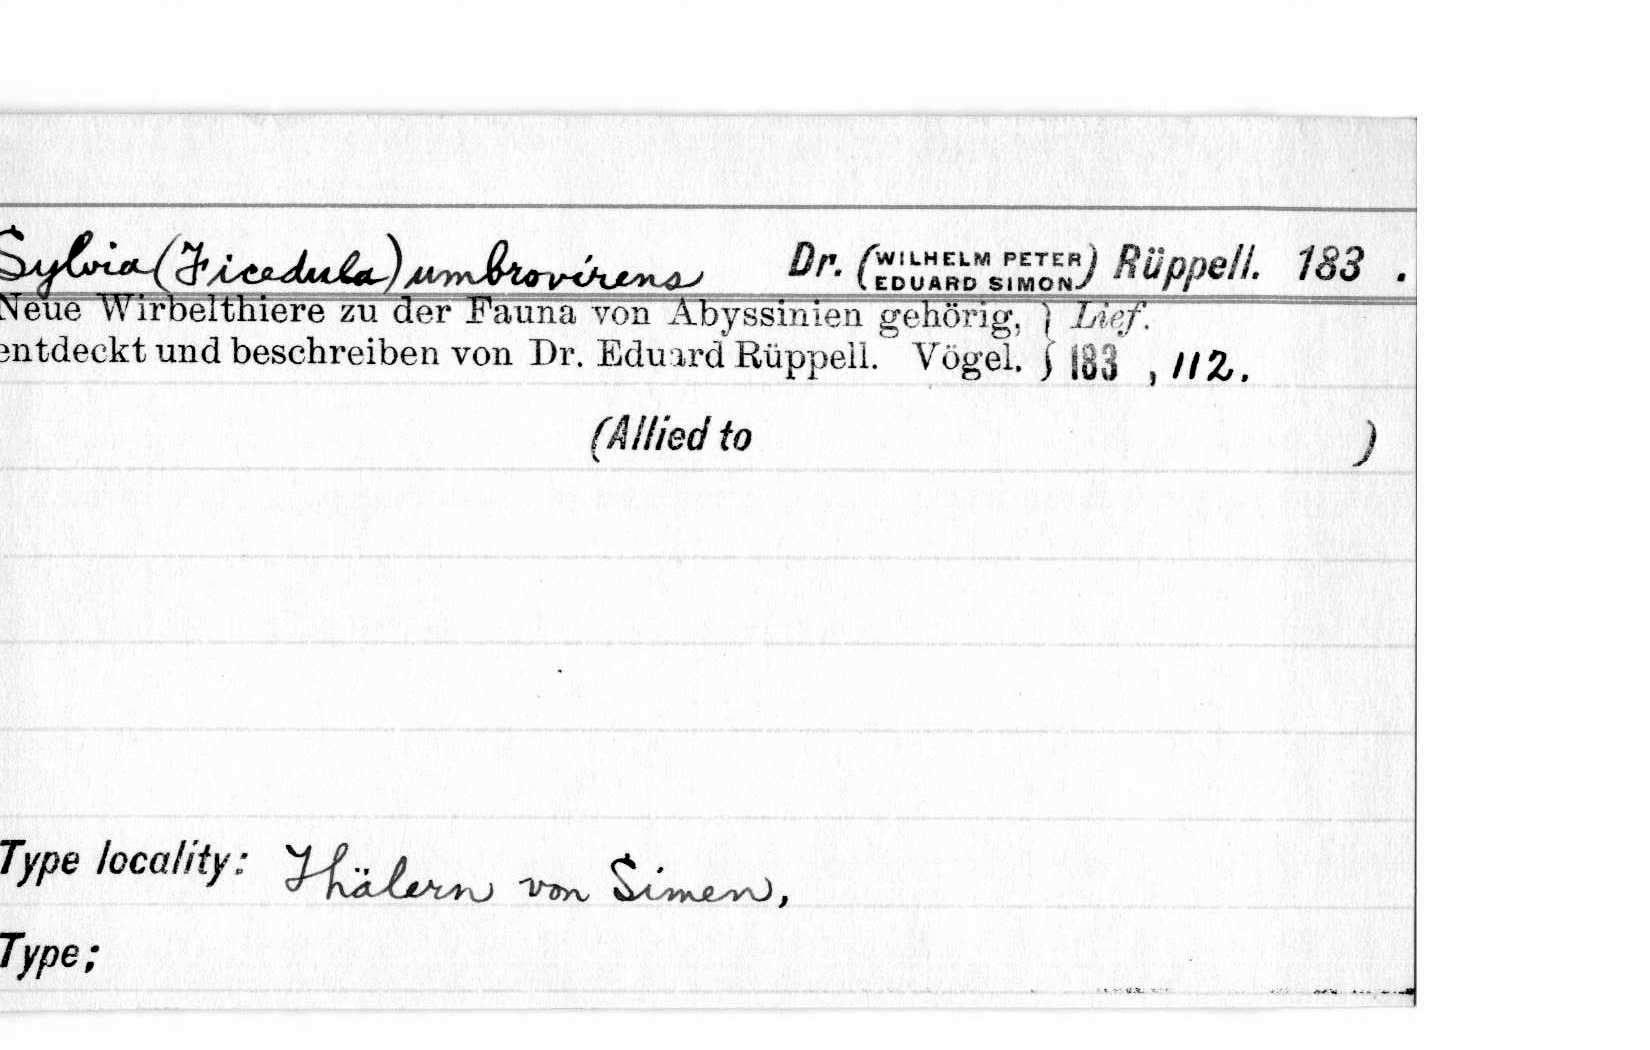 Sylvia (Ficedula) umbrovirens Dr. (WILHELM PETER EDUARD SIMON) Rüppell. 183 .
Neue Wirbelthiere zu der Fauna von Abyssinien gehörig, } Lief.
entdeckt und beschreiben von Dr. Eduard Rüppell. Vögel. } 183 , 112.
(Allied to )
Type locality: Thälern von Simen,
Type;